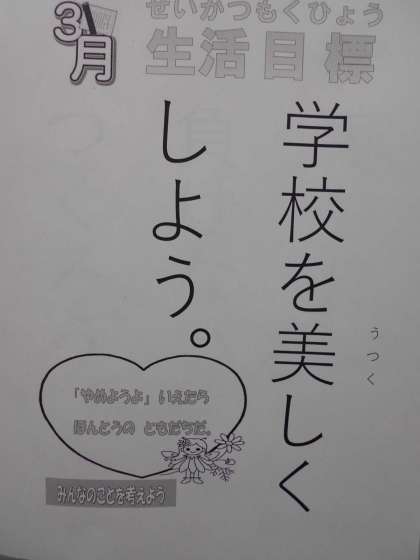 3月
せいかつもくひょう
生活目標
学校を美しく
うつく
しよう。
「やめようよ」いえたら
ほんとうの ともだちだ。
みんなのことを考えよう